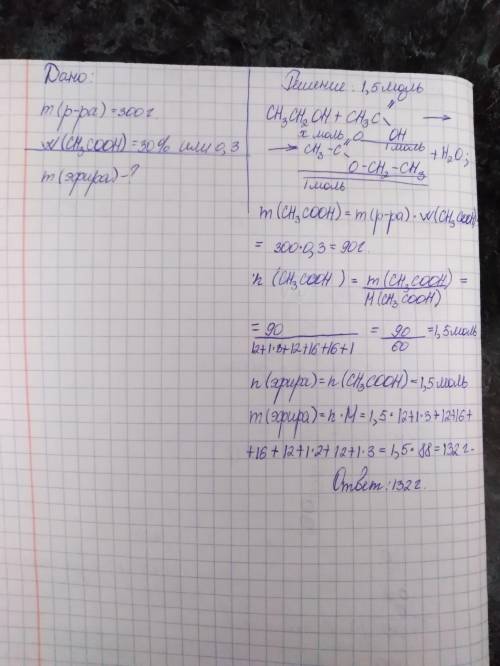 Дано:
m(р-ра)=300г
w(CH3COOH)=30% или 0,3
m(эфира)-?
Решение: 1,5 моль
O
CH3CH2OH + CH3C →
OH
х моль 1 моль
O
→ CH3-C + H2O;
O-CH2-CH3
1 моль
m(CH3COOH)=m(р-ра)·w(CH3COOH)
= 300·0,3=90г.
n(CH3COOH) = m(CH3COOH)/M(CH3COOH) =
= 90/12+1·3+12+16+16+1 = 90/60 =1,5 моль
n(эфира)=n(CH3COOH)=1,5 моль
m(эфира)=n·M=1,5·12+1·3+12+16+
+16+12+1·2+12+1·3=1,5·88=132г.
Ответ: 132г.